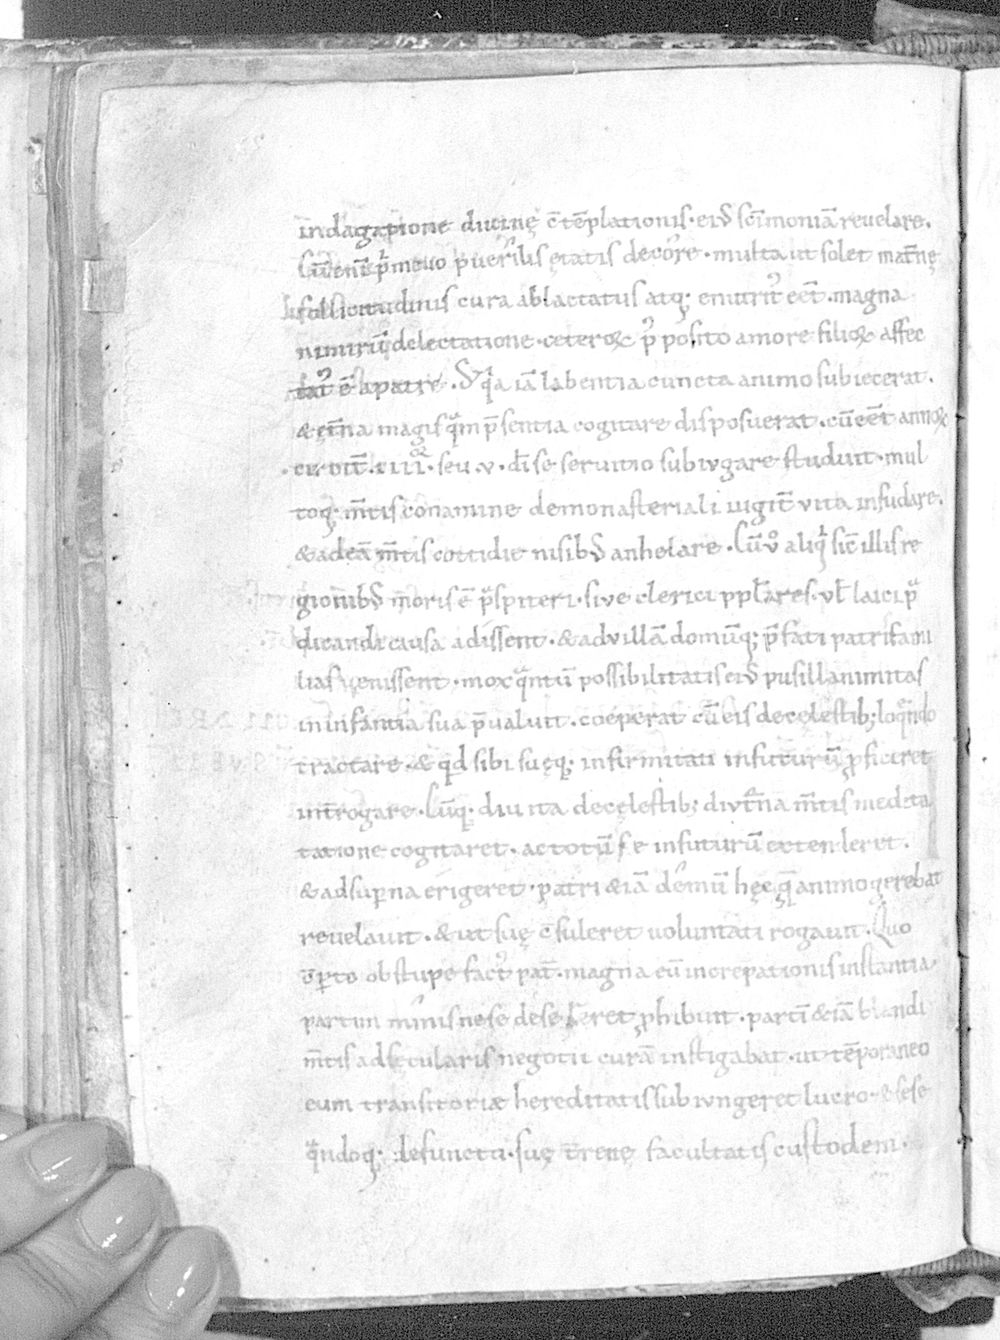 indagatione diuinę c̄tēplationis. eiꝰ sc̄imoniā reuelare.
puerilis ętatis decore. multa ut solet mat̄nę
sollicitudinis cura ablactatus atq; enutritꝰ eēt. magna
nimirū delectatione. ceteroꝝ p̄ posito amore filioꝝ affec
tatꝰ ē a patre. Sꝫ q̇a iā labentia cuncta animo subiecerat.
& et̄na magis quā p̄sentia cogitare disposuerat. cū eēt annoꝝ
circit̄ .iiii. seu .v. dī se seruitio subiugare studuit. mul
toq; m̄tis conamine de monasteriali iugit̄ vita insudare.
& ad eā m̄tis cottidie nisibꝰ anhelare. Cū ů aliq̇ sic̄ illis re
gionibꝰ moris ē p̄sƀiteri. siue clerici pplares. vł laici p̄
dicandi causa adissent. & ad villā domūq; p̄fati patrifami
lias uenissent. mox q̄ntū possibilitatis eiꝰ pusillanimitas
in infantia sua p̄ualuit. coeperat cū eis de cęlestib; loq̄ndo
tractare. & q̇d sibi suęq; infirmitati in futurū ꝓficeret
int̄rogare. Cūq; diu ita de cęlestib; diut̄na m̄tis medita
tatione cogitaret. ac totū se in futurū extenderet.
& ad sup̄na erigeret. patri & iā demū hęc quę animo gerebat
reuelauit. & ut suę c̄suleret uoluntati rogauit. Quo
cōperto obstupefactꝰ pat̄. magna eū increpationis instantia.
partim minis ne se desereret ꝓhibuit. partī & iā blandi
m̄tis ad sęcularis negotii curā instigabat. ut tēporaneo
eum transitoriæ hereditatis subiungeret lucro. & sese
q̄ndoq; defuncti. suę t̄renę facultatis custodem.